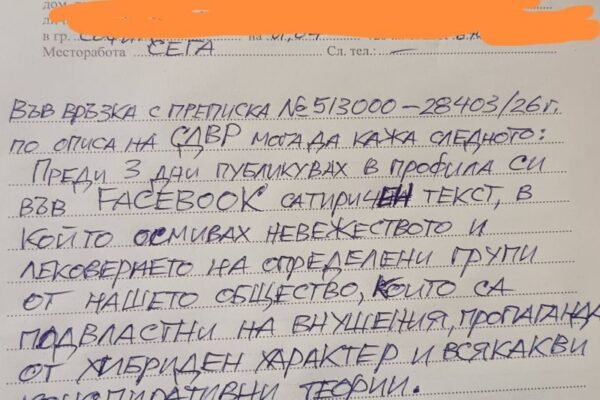 в гр. СОФИЯ на 01.04
Месторабота СЕГА Сл. тел.: —
ВЪВ ВРЪЗКА С ПРЕПИСКА № 513000-28403/26г.
ПО ОПИСА НА СДВР МОГА ДА КАЖА СЛЕДНОТО:
ПРЕДИ 3 ДНИ ПУБЛИКУВАХ В ПРОФИЛА СИ
ВЪВ FACEBOOK САТИРИЧЕН ТЕКСТ, В
КОЙТО ОСМИВАХ НЕВЕЖЕСТВОТО И
ЛЕКОВЕРИЕТО НА ОПРЕДЕЛЕНИ ГРУПИ
ОТ НАШЕТО ОБЩЕСТВО, КОИТО СА
ПОДВЛАСТНИ НА ВНУШЕНИЯ, ПРОПАГАНДА
ОТ ХИБРИДЕН ХАРАКТЕР И ВСЯКАКВИ
КОНСПИРАТИВНИ ТЕОРИИ.